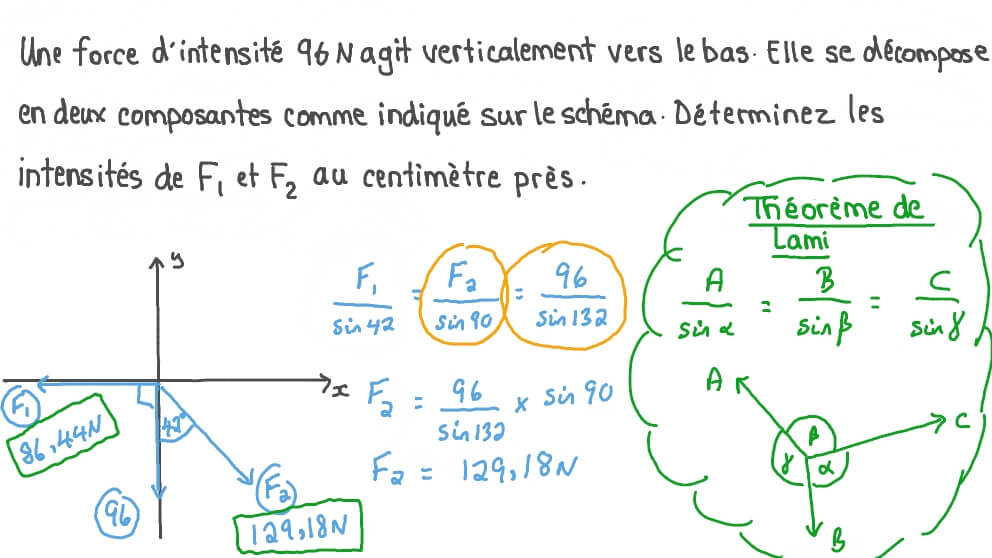 Une force d'intensité 96 N agit verticalement vers le bas. Elle se décompose
en deux composantes comme indiqué sur le schéma. Déterminez les
intensités de F₁ et F₂ au centimètre près.
Théorème de
Lami
A/sin α = B/sin β = C/sin γ
A
C
β
γ
α
B
F₁/sin 42 = F₂/sin 90 = 96/sin 132
F₂ = 96/sin 132 x sin 90
F₂ = 129,18N
y
x
F₁
86,44N
42°
96
F₂
129,18N